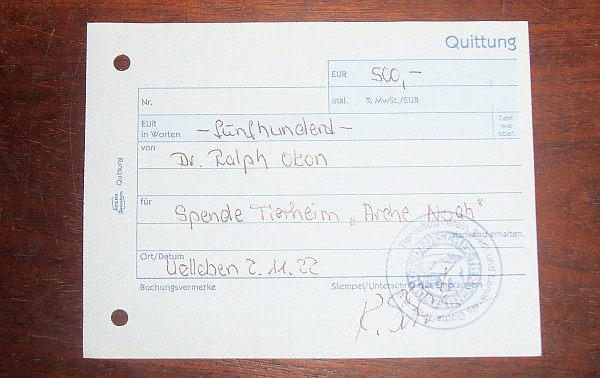 Quittung
EUR 500,–
Nr.
inkl. % MwSt./EUR
EUR in Worten – fünfhunderd –
Cent wie oben
von
Dr. Ralph Okon
für
Spende Tierheim „Arche Noah"
dankend erhalten.
Ort/Datum
Uelleben 2.11.22
Buchungsvermerke
Stempel/Unterschrift des Empfängers
Tierschutzverein Stadt und
Quittung